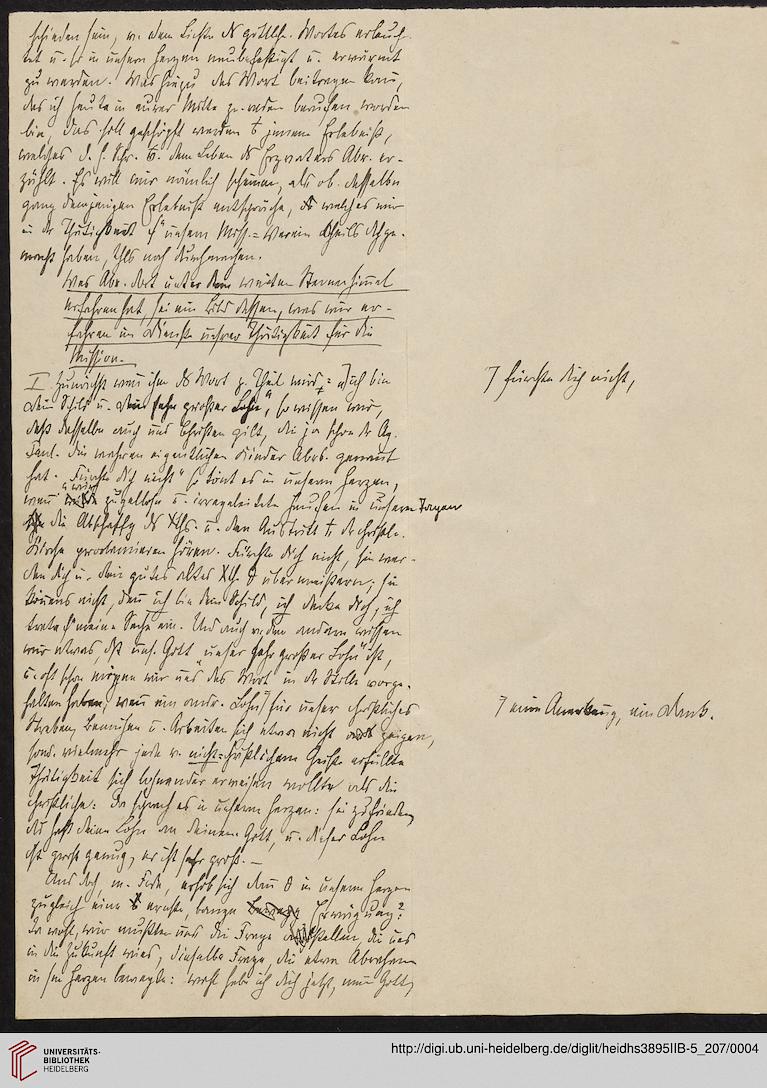 schieden sein, v. dem Lichte ds göttlch. Wortes erleuch-
tet u. so in unsern Herzen neubefestigt u. erwärmt
zu werden. Was hiezu das Wort beitragen kann,
das ich heute in eurer Mitte zu reden berufen worden
bin, das soll geschöpft werden jenem Erlebniß,
welches d. h. Schr. dem Leben ds Erzvaters Abr. er-
zählt. Es will mir nämlich scheinen, als ob dasselbe
ganz demjenigen Erlebniß entspräche, welches wir
in der Thätigkeit unsern Miss.=Verein theils dchge-
macht haben, thls noch durchmachen.
Was Abr. dort unter dem weiten Sternenhimmel
erfahren hat, sei ein Bild dessen, was wir er-
fahren im Dienste unsrer Thätigkeit für die
Mission.
I Zunächst wenn ihm ds Wort z. Theil wird: "Ich bin
dein Schild u. dein sehr großer Lohn", so wissen wir,
daß dasselbe auch uns Christen gilt, die ja schon der Ap.
Paul. die wahren eigentlichen Kinder Abrs. genannt
hat. "Fürchte dich nicht" so tönt es in unserm Herzen,
wenn zügellose u. irregeleitete Haufen in unseren Tagen
die Abschaffg ds Xths. u. den Austritt der christl.
Kirche proclamieren hören. Fürchte dich nicht, sie wer-
den dich u. dein gutes altes Xth. übermeistern; sie
können's nicht, denn ich bin dein Schild, ich decke dich, ich
trete meine Sache ein. Und auch v. dem andern wissen
wir etwas, dß uns. Gott unser "sehr großer Lohn" ist,
u. oft schon mögen wir uns das Wort in der Stille vorge-
halten haben, wenn ein andr. Lohn für unser christliches
Streben, Bemühen u. Arbeiten sich etwa nicht zeigen,
sond. vielmehr jede v. nicht=christlichem Geiste erfüllte
Thätigkeit sich lohnender erweisen wollte als die
christliche: Da sprach es in unserm Herzen: sei zufrieden,
du hast deinen Lohn an deinem Gott, u. dieser Lohn
ist groß genug, er ist sehr groß. —
Und doch, m. Frde, erhob sich dann in unserm Herzen
zugleich eine ernste, bange Erwägung?
Ja wohl, wir mußten uns die Frage stellen, die uns
in die Zukunft wies, dieselbe Frage, die etwa Abraham
in sm Herzen bewegte: wohl habe ich dich jetzt, mein Gott,
fürchte dich nicht,
eine Anerkennung, ein Dank.
UNIVERSITÄTS-
BIBLIOTHEK
HEIDELBERG
http://digi.ub.uni-heidelberg.de/diglit/heidhs3895IIB-5_207/0004